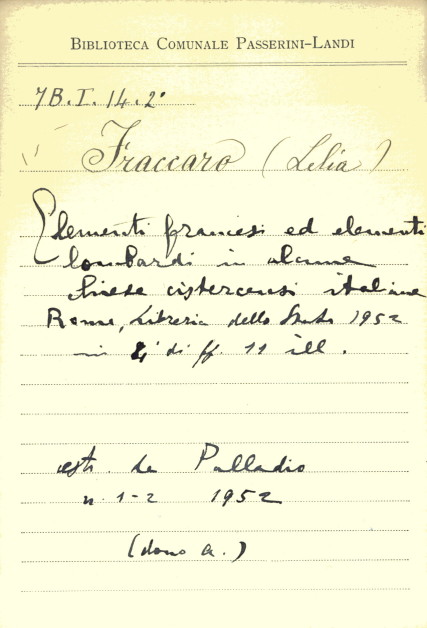 BIBLIOTECA COMUNALE PASSERINI-LANDI
7B.I.14.2°
Fraccaro (Lelia)
Elementi francesi ed elementi
lombardi in alcune
chiese cistercensi italiane
Roma, Libreria dello Stato 1952
in 4° di ff. 11 ill.
estr. da Palladio
n. 1-2 1952
(dono a.)